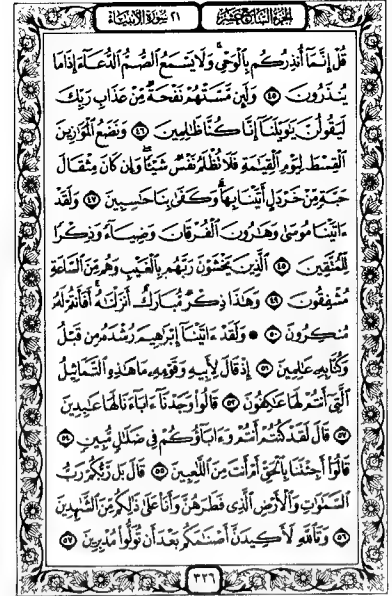 الجزء السابع عشر ٢١ سورة الأنبياء
قُلْ إِنَّمَا أُنذِرُكُم بِالْوَحْيِ وَلَا يَسْمَعُ الصُّمُّ الدُّعَاءَ إِذَا مَا
يُنذَرُونَ ٤٥ وَلَئِن مَّسَّتْهُمْ نَفْحَةٌ مِّنْ عَذَابِ رَبِّكَ
لَيَقُولُنَّ يَٰوَيْلَنَا إِنَّا كُنَّا ظَٰلِمِينَ ٤٦ وَنَضَعُ الْمَوَٰزِينَ
الْقِسْطَ لِيَوْمِ الْقِيَٰمَةِ فَلَا تُظْلَمُ نَفْسٌ شَيْـًٔا وَإِن كَانَ مِثْقَالَ
حَبَّةٍ مِّنْ خَرْدَلٍ أَتَيْنَا بِهَا وَكَفَىٰ بِنَا حَٰسِبِينَ ٤٧ وَلَقَدْ
ءَاتَيْنَا مُوسَىٰ وَهَٰرُونَ الْفُرْقَانَ وَضِيَاءً وَذِكْرًا
لِّلْمُتَّقِينَ ٤٨ الَّذِينَ يَخْشَوْنَ رَبَّهُم بِالْغَيْبِ وَهُم مِّنَ السَّاعَةِ
مُشْفِقُونَ ٤٩ وَهَٰذَا ذِكْرٌ مُّبَارَكٌ أَنزَلْنَٰهُ أَفَأَنتُمْ لَهُ
مُنكِرُونَ ٥٠ ۞ وَلَقَدْ ءَاتَيْنَا إِبْرَٰهِيمَ رُشْدَهُ مِن قَبْلُ
وَكُنَّا بِهِ عَٰلِمِينَ ٥١ إِذْ قَالَ لِأَبِيهِ وَقَوْمِهِ مَا هَٰذِهِ التَّمَاثِيلُ
الَّتِي أَنتُمْ لَهَا عَٰكِفُونَ ٥٢ قَالُوا وَجَدْنَا ءَابَاءَنَا لَهَا عَٰبِدِينَ
٥٣ قَالَ لَقَدْ كُنتُمْ أَنتُمْ وَءَابَاؤُكُمْ فِي ضَلَٰلٍ مُّبِينٍ ٥٤
قَالُوا أَجِئْتَنَا بِالْحَقِّ أَمْ أَنتَ مِنَ اللَّٰعِبِينَ ٥٥ قَالَ بَل رَّبُّكُمْ رَبُّ
السَّمَٰوَٰتِ وَالْأَرْضِ الَّذِي فَطَرَهُنَّ وَأَنَا عَلَىٰ ذَٰلِكُم مِّنَ الشَّٰهِدِينَ
٥٦ وَتَاللَّهِ لَأَكِيدَنَّ أَصْنَٰمَكُم بَعْدَ أَن تُوَلُّوا مُدْبِرِينَ ٥٧
٣٢٦